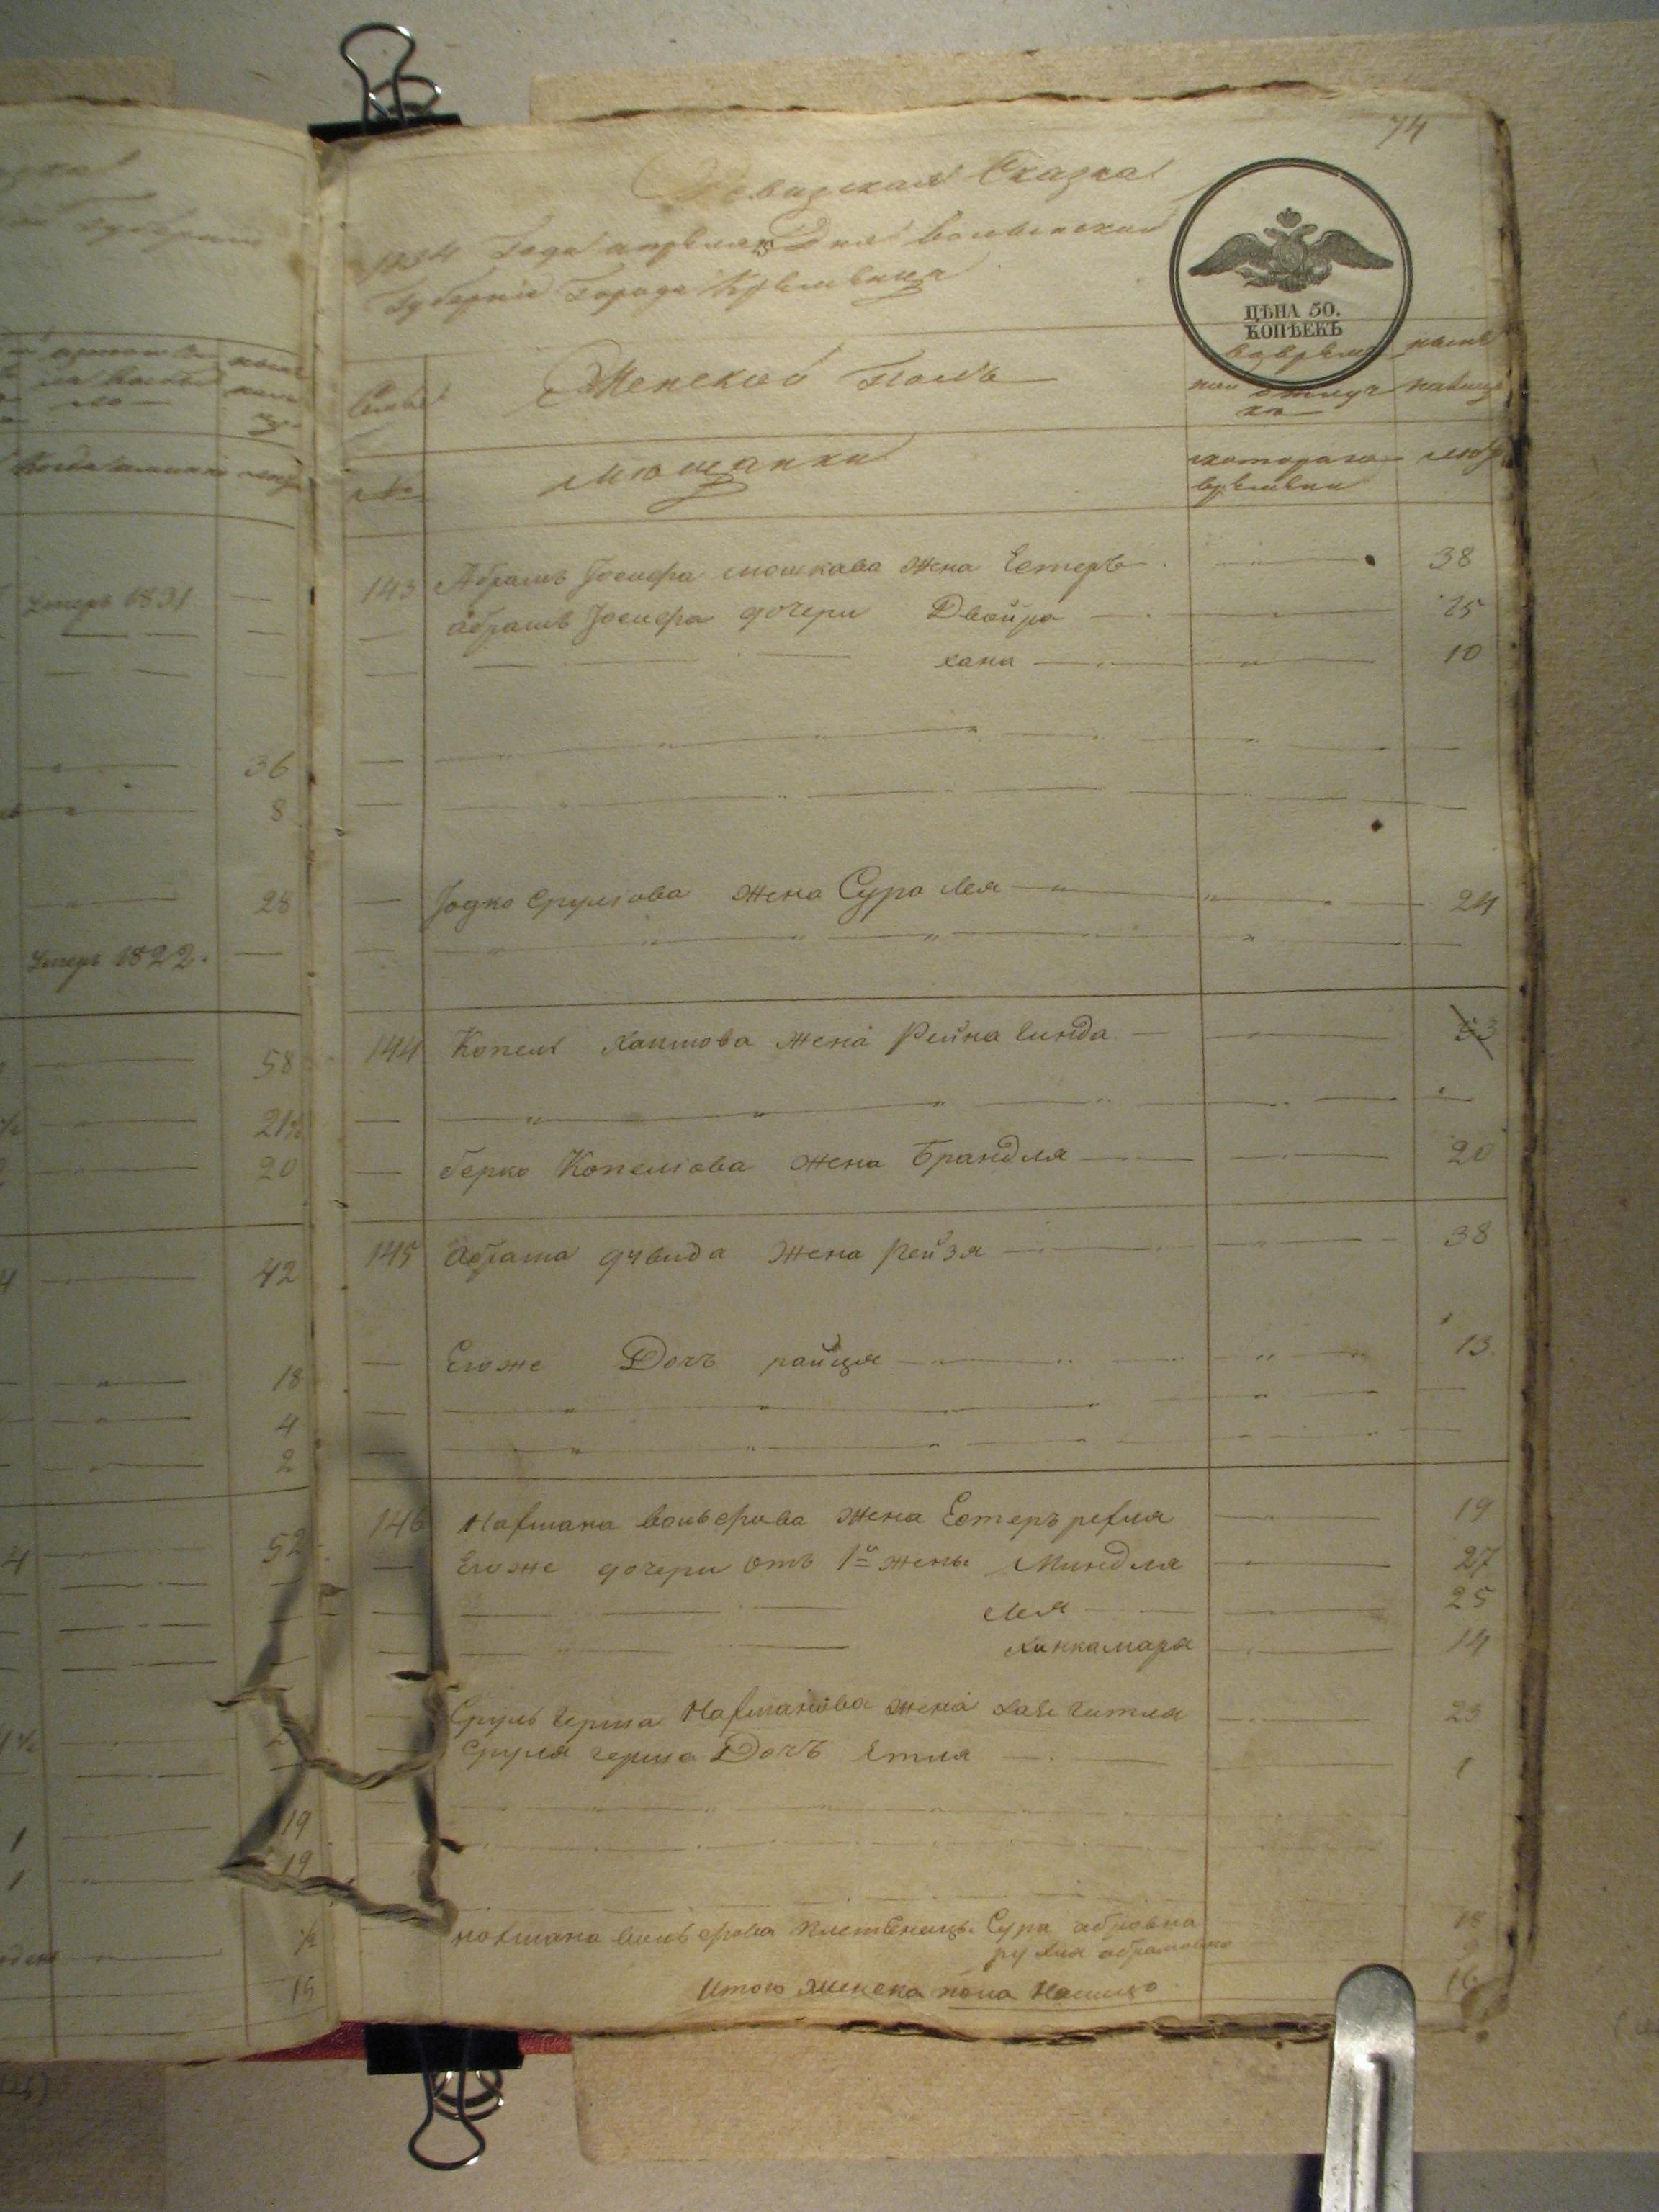 74
Ревизская Сказка
1834 Года апреля Дня Волынской
Губернии Города Кременца
ЦѢНА 50.
КОПѢЕКЪ
Семья Женской Полъ во временной отлучке ныне налицо
№ мещанки с котораго времени лета
143 Абрамъ Іосифа мошкова жена Естеръ 38
Абрамъ Іосифа дочери Двойра 15
хана 10
Іодко Срулiова жена Сура Лея 24
144 Копель Хаимова жена Рейна Гинда 53
берко Копелiова жена Брандля 20
145 абрама давида жена рейзя 38
Егоже Дочъ райця 13
146 Нахмана вольфова жена Естеръ рехля 19
Егоже дочери отъ 1й жены Миндля 27
Лея 25
14
Сруль герша Нахманова жена хая гитля 23
Сруля герша Дочъ Етля 1
нахмана вольфова племеницы Сура 18
абрамовна
Итого женска пола Налицо 16
Умеръ 1831
36
8
28
Умеръ 1822.
58
21½
20
42
18
4
2
52
19
19
½
15